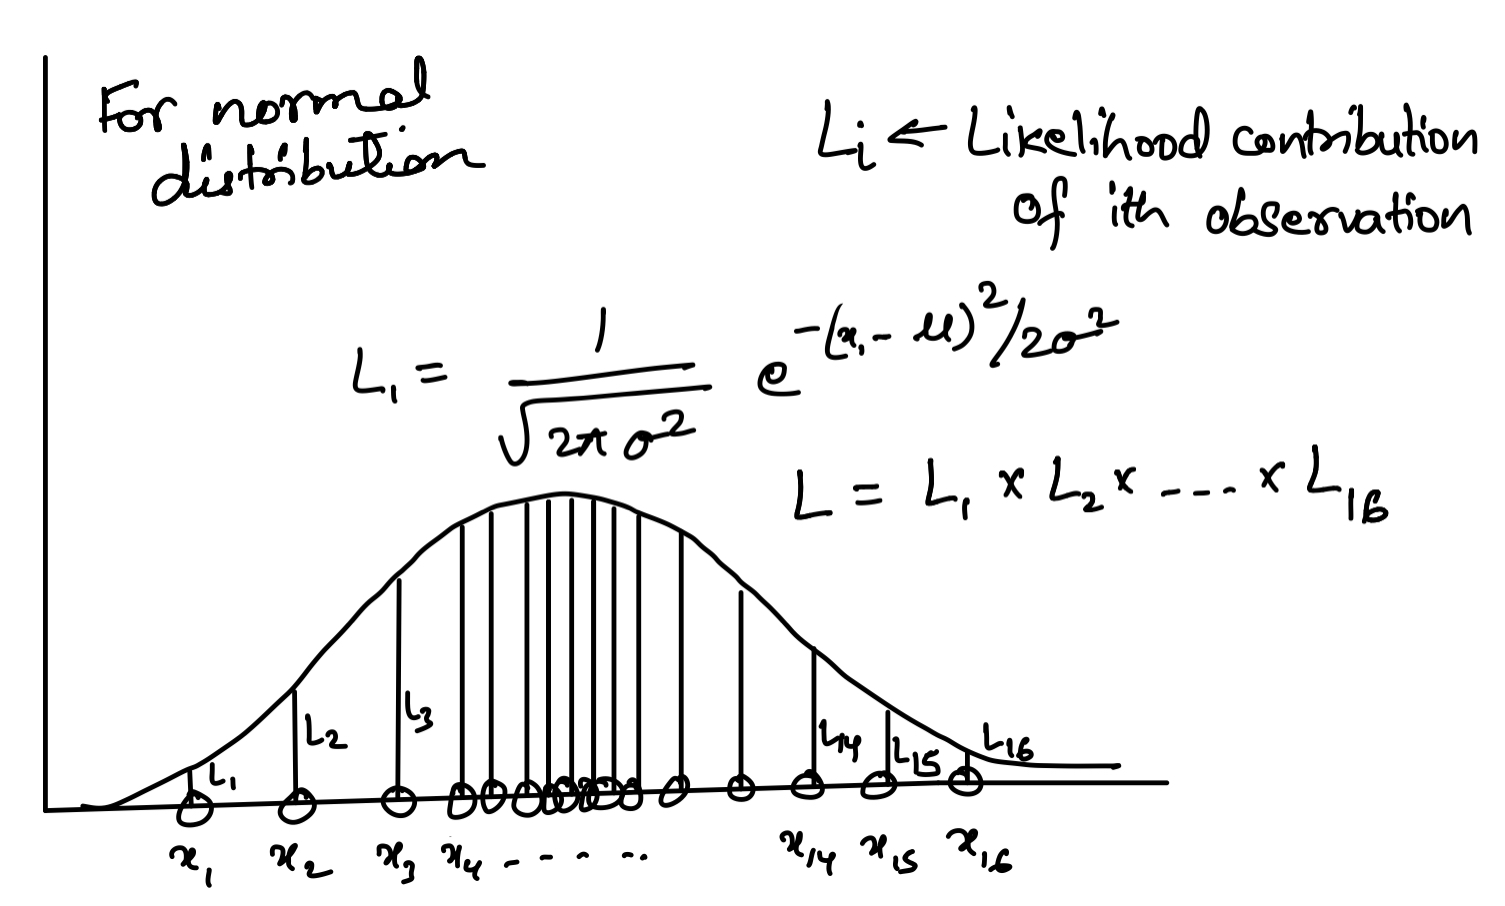 For normal
distribution
Lᵢ ← Likelihood contribution
of ith observation
L₁ = 1 / √(2πσ²) e^(-(x₁ - μ)²/2σ²)
L = L₁ × L₂ × ---- × L₁₆
L₁ L₂ L₃ L₁₄ L₁₅ L₁₆
x₁ x₂ x₃ x₄ - - - - x₁₄ x₁₅ x₁₆